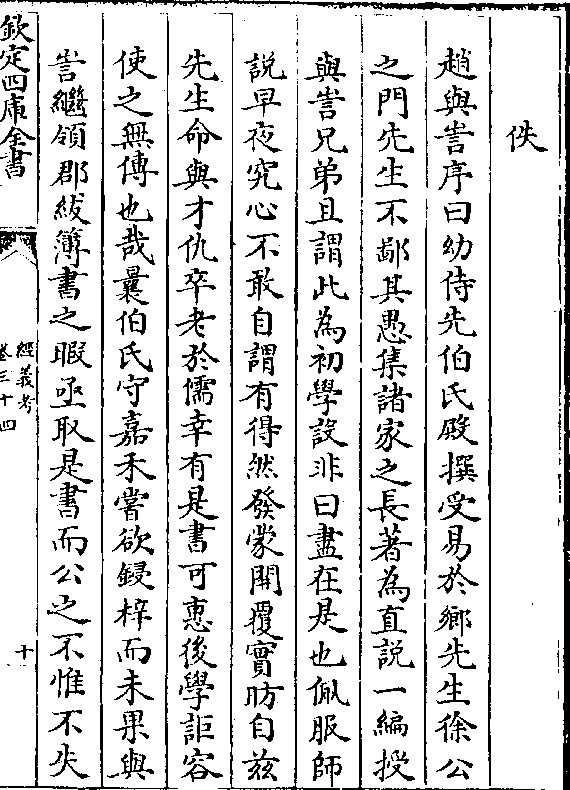 佚
趙與訔序曰幼侍先伯氏殿撰受易於鄉先生徐公
之門先生不鄙其愚集諸家之長著為直説一編授
與訔兄弟且謂此為初學設非曰盡在是也佩服師
説早夜究心不敢自謂有得然發蒙開覆實昉自兹
先生命與才仇卒老於儒幸有是書可惠後學詎容
使之無傳也哉曩伯氏守嘉禾嘗欲鋟梓而未果與
訔繼領郡紱簿書之暇亟取是書而公之不惟不失
欽定四庫全書
經義考
卷三十四
十